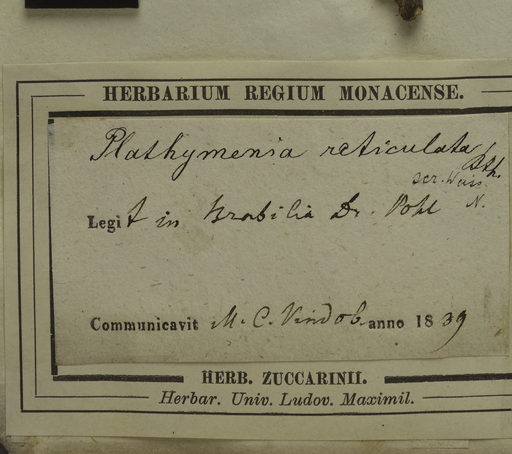 HERBARIUM REGIUM MONACENSE.
Plathymenia reticulata Bth.
scr. Weis.
Legit in Brasilia Dr. Pohl N.
Communicavit M. C. Vindob. anno 1839
HERB. ZUCCARINII.
Herbar. Univ. Ludov. Maximil.